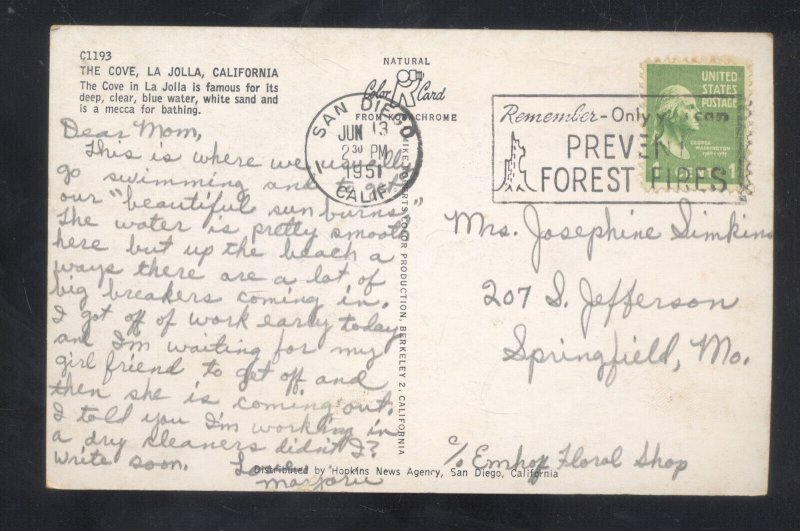 C1193
THE COVE, LA JOLLA, CALIFORNIA
The Cove in La Jolla is famous for its
deep, clear, blue water, white sand and
is a mecca for bathing.
Dear Mom,
This is where we usually
go swimming and to get
our "beautiful sunburns"
The water is pretty smooth
here but up the beach a
ways there are a lot of
big breakers coming in.
I got off of work early today
and I'm waiting for my
girl friend to get off and
then she is coming out.
I told you I'm working in
a dry cleaners didn't I?
Write soon. Love
Marjorie
NATURAL
Color Card
FROM KODACHROME
MIKE ROBERTS COLOR PRODUCTION, BERKELEY 2, CALIFORNIA
Distributed by Hopkins News Agency, San Diego, California
SAN DIEGO
JUN 13
2 30 PM
1951
CALIF.
Remember-Only you can
PREVENT
FOREST FIRES
UNITED
STATES
POSTAGE
GEORGE
WASHINGTON
1 CENT 1
Mrs. Josephine Simkins
207 S. Jefferson
Springfield, Mo.
c/o Emhoy Floral Shop